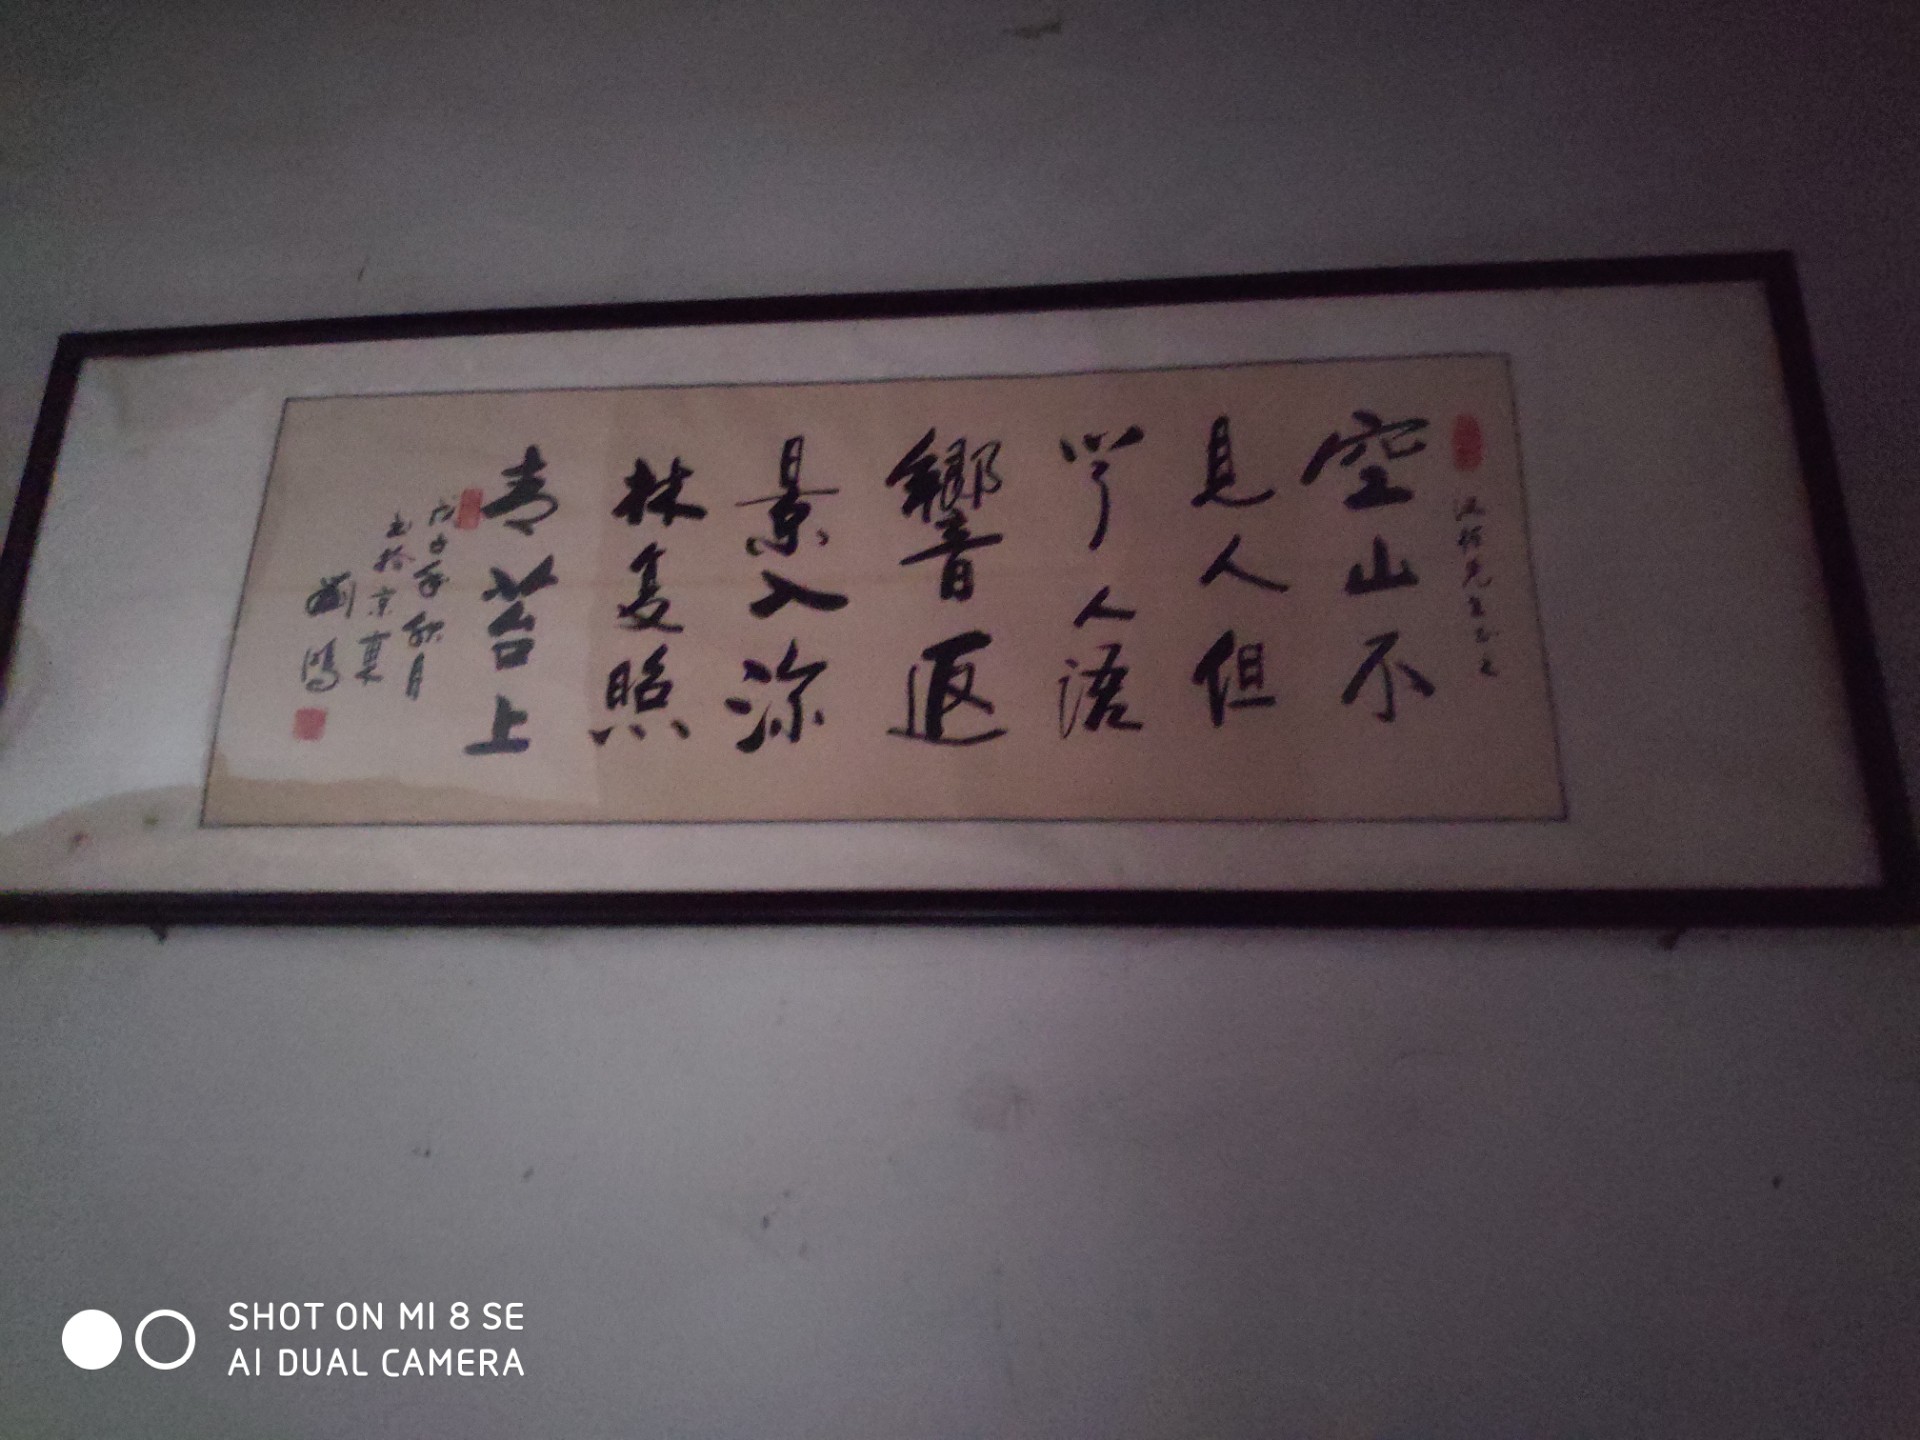 先生
空山不
見人但
聞人語
響返
景入深
林复照
青苔上
戊子年秋月
书於京
SHOT ON MI 8 SE
AI DUAL CAMERA